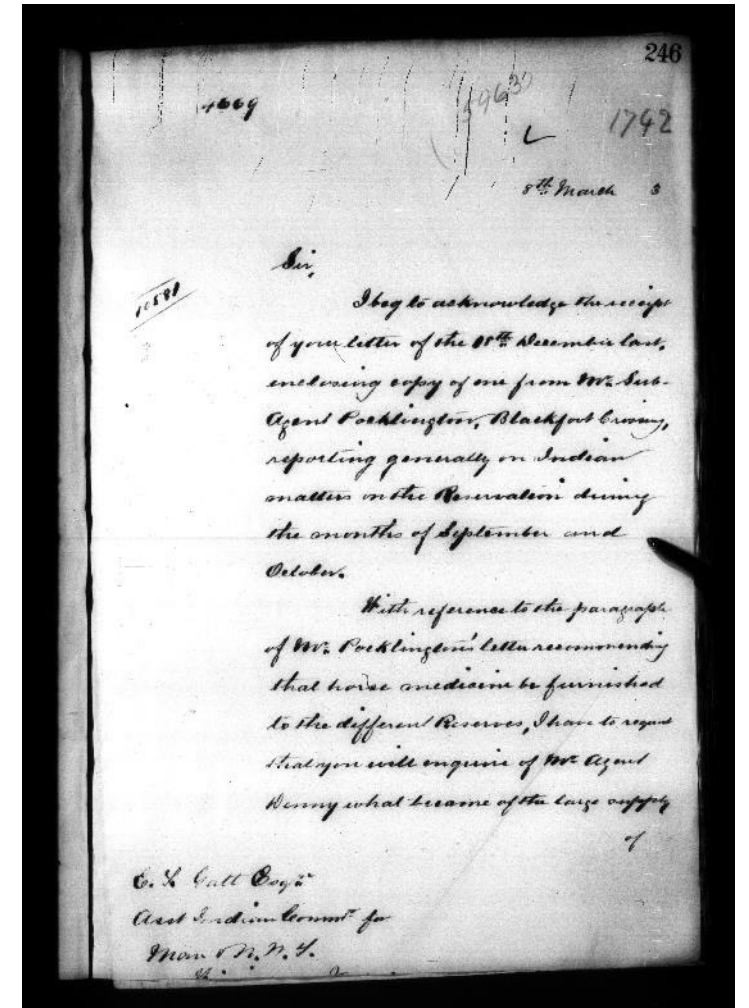 246
4669
5963
L
1742
8th March 3
10581
Sir,
I beg to acknowledge the receipt
of your letter of the 18th December last,
enclosing copy of one from Mr. Sub-
Agent Pocklington, Blackfoot Crossing,
reporting generally on Indian
matters on the Reservation during
the months of September and
October.
With reference to the paragraph
of Mr. Pocklington's letter recommending
that horse medicine be furnished
to the different Reserves, I have to request
that you will enquire of Mr. Agent
Denny what became of the large supply
of
E. T. Galt Esqr
Asst Indian Commr for
Man & N. W. T.